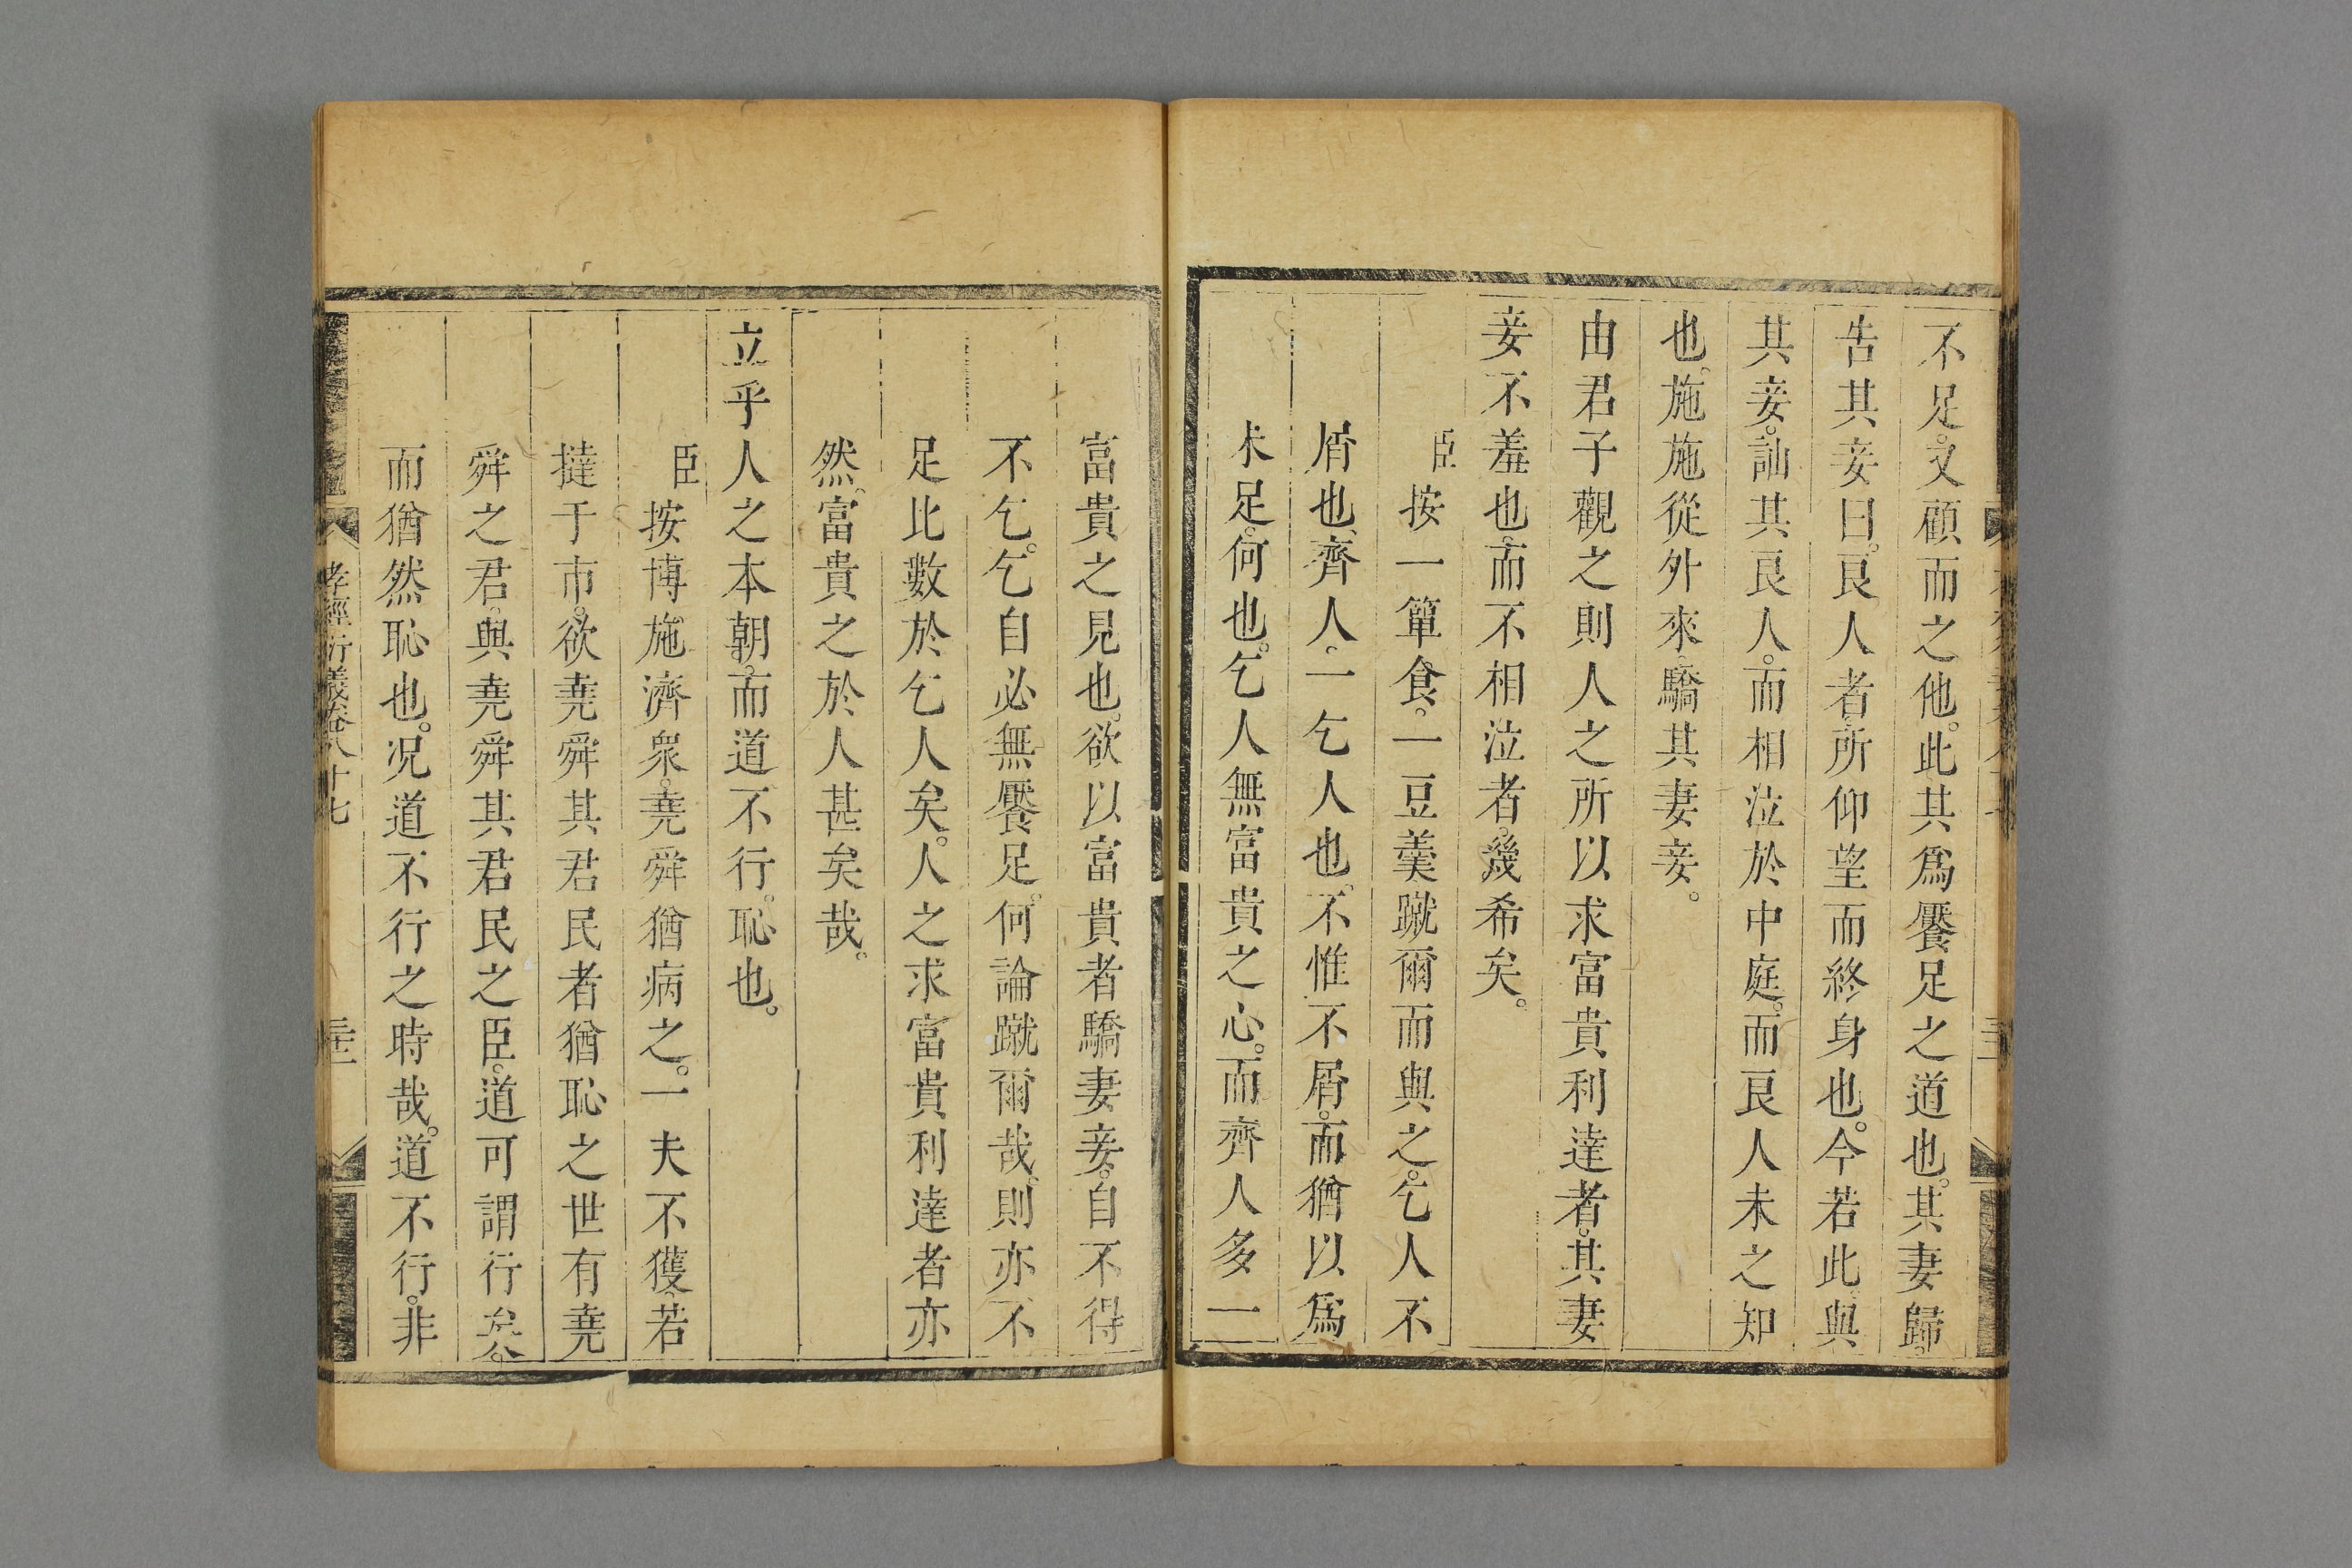 不足。又顧而之他。此其爲饜足之道也。其妻歸。
告其妾曰。良人者。所仰望而終身也。今若此。與
其妾。訕其良人。而相泣於中庭。而良人未之知
也。施施從外來。驕其妻妾。
由君子觀之。則人之所以求富貴利達者。其妻
妾不羞也。而不相泣者。幾希矣。
臣按一簞食。一豆羹。蹴爾而與之。乞人不
屑也。齊人。一乞人也。不惟不屑。而猶以爲
未足。何也。乞人無富貴之心。而齊人多一
富貴之見也。欲以富貴者驕妻妾。自不得
不乞。乞自必無饜足。何論蹴爾哉。則亦不
足比數於乞人矣。人之求富貴利達者亦
然。富貴之於人甚矣哉。
立乎人之本朝。而道不行。恥也。
臣按博施濟衆。堯舜猶病之。一夫不獲。若
撻于市。欲堯舜其君民者猶恥之世有堯
舜之君。與堯舜其君民之臣。道可謂行矣。
而猶然恥也。况道不行之時哉。道不行。非
孝經衍義卷八十七